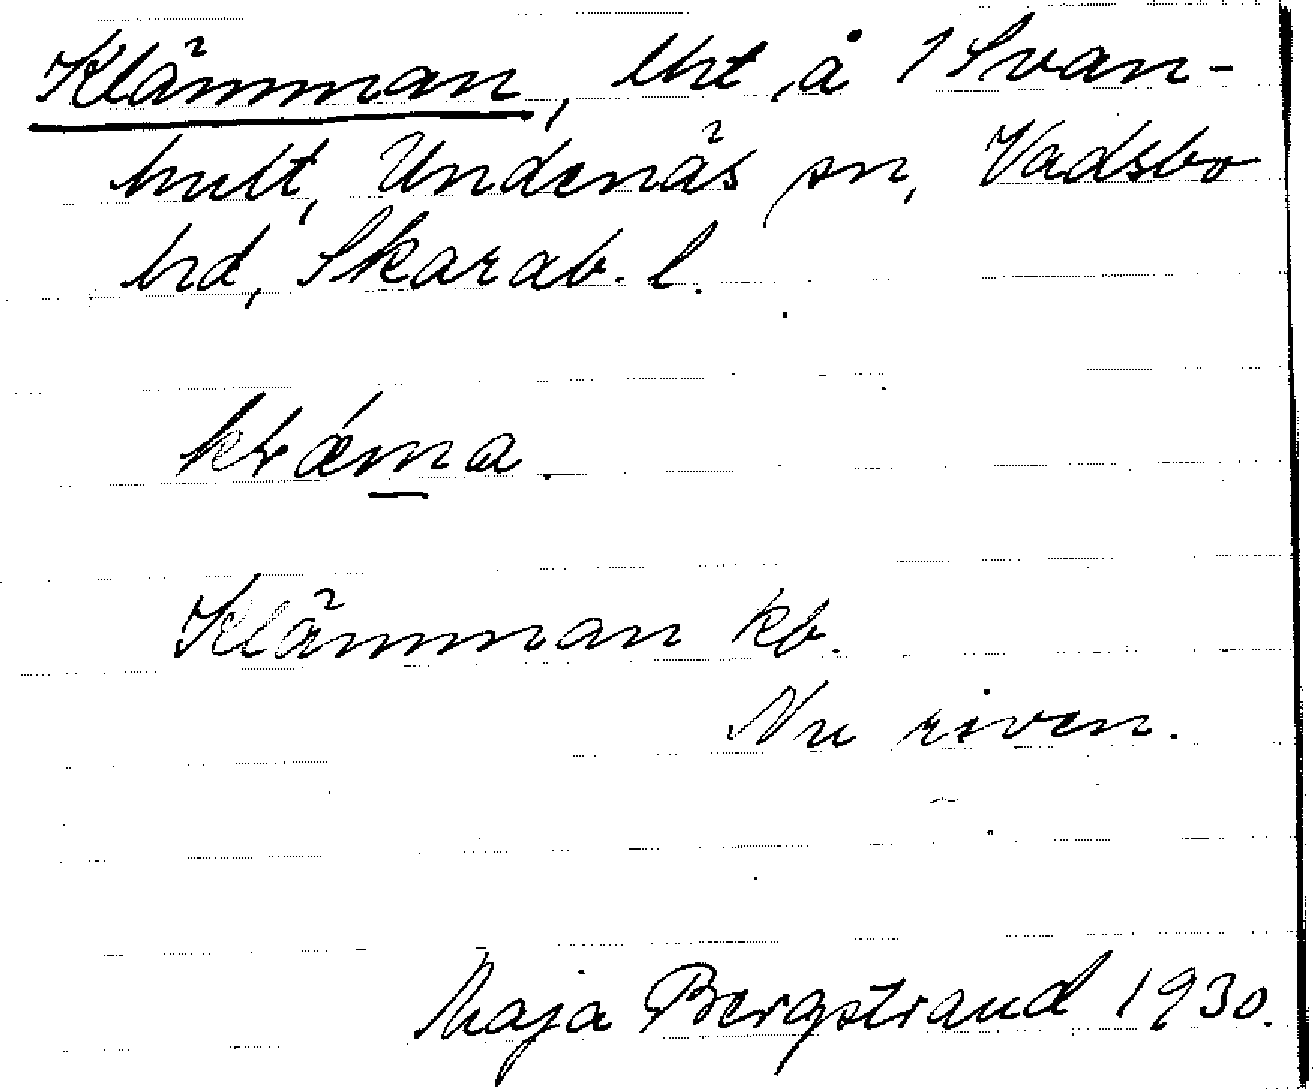 Klämman, lht å 1 Svan-
hult, Undenäs sn, Vadsbo
hd, Skarab. l.
Klämman kb.
Nu riven.
Maja Bergstrand 1930.